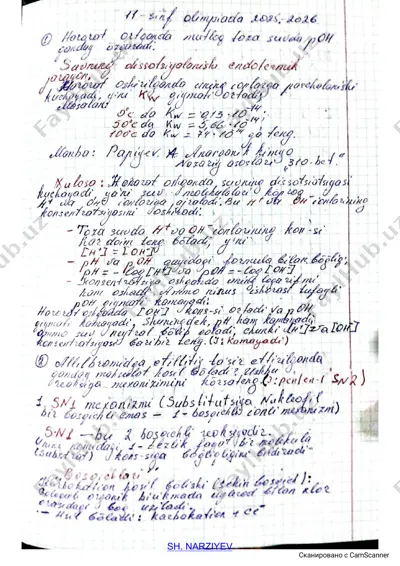 11-sinf olimpiada 2025-2026
① Harorat ortganda mutloq toza suvda pOH
qanday o'zgaradi.
Suvning dissotsiyalanishi endotermik
jarayon.
Harorat oshirilganda uning ionlarga parchalanishi
kuchayadi, ya'ni Kw qiymati ortadi
Masalan:
0°C da Kw = 0,13·10⁻¹⁴
50°C da Kw = 5,66·10⁻¹⁴
100°C da Kw = 74·10⁻¹⁴ ga teng.
Manba: Parpiyev A Anorganik kimyo
Nazariy asoslari "310-bet"
Xulosa: Harorat oshganda, suvning dissotsiatsiyasi
kuchayadi, ya'ni suv molekulalari ko'proq
H⁺ va OH⁻ ionlariga ajraladi. Bu H⁺ va OH⁻ ionlarining
konsentratsiyasini oshiradi.
- Toza suvda H⁺ va OH⁻ ionlarining kon-si
har doim teng bo'ladi, ya'ni
[H⁺] = [OH⁻]
- pH va pOH quyidagi formula bilan bog'liq:
pH = -log[H⁺] va pOH = -log[OH⁻]
- Konsentratsiya oshganda uning logarifmi
ham oshadi ammo minus ishorasi tufayli
pOH qiymati kamayadi.
Harorat oshganda [OH⁻] kons-si ortadi va pOH
qiymati kamayadi, Shuningdek, pH ham kamayadi
ammo suv neytral bo'lib qoladi, chunki [H⁺] va [OH⁻]
konsentratsiyasi baribir teng. (J: Kamayadi)
ta'sir ettirilganda
qanday mahsulot hosil bo'ladi?
reaksiya mexanizimini ko'rsating (J: penten-1 SN2)
1. SN1 mexanizmi (Substitutsiya Nukleofil
bir bosqichli emas - 1-bosqichli ionli mexanizm)
SN1 - bu 2 bosqichli reaksiyadir.
1-tezlik faqat bir molekula
(substrat) kons-siga bog'liqligini bildiradi
Bosqichlari
Karbokation hosil bo'lishi (sekin bosqich):
organik birikmada uglerod bilan xlor
orasidagi bog' uziladi.
- Hosil bo'ladi: karbokation +
SH. NARZIYEV
FaylHub.uz
Сканировано с CamScanner